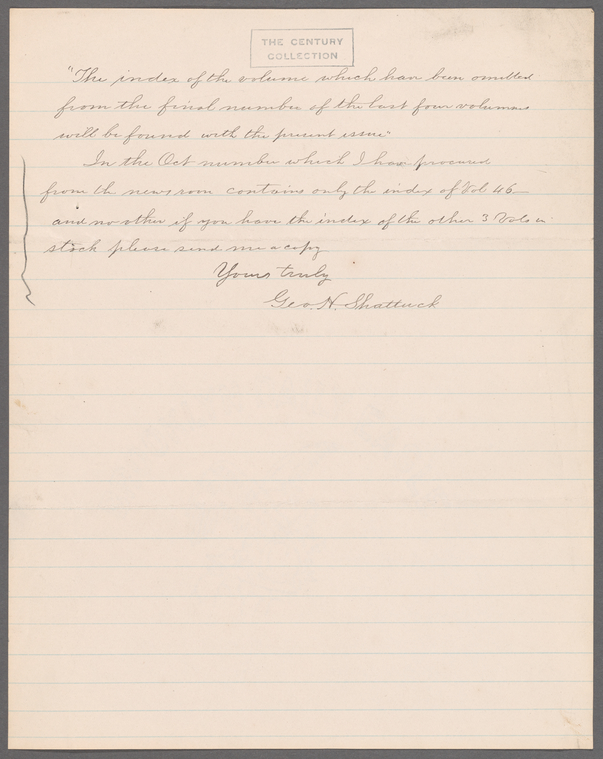 THE CENTURY
COLLECTION
"The index of the volume which has been omitted
from the final number of the last four volumes
will be found with the present issue"
In the Oct number which I have procured
from the news room contains only the index of Vol 46
and no other if you have the index of the other 3 Vols in
stock please send me a copy
Yours truly
Geo. N. Shattuck